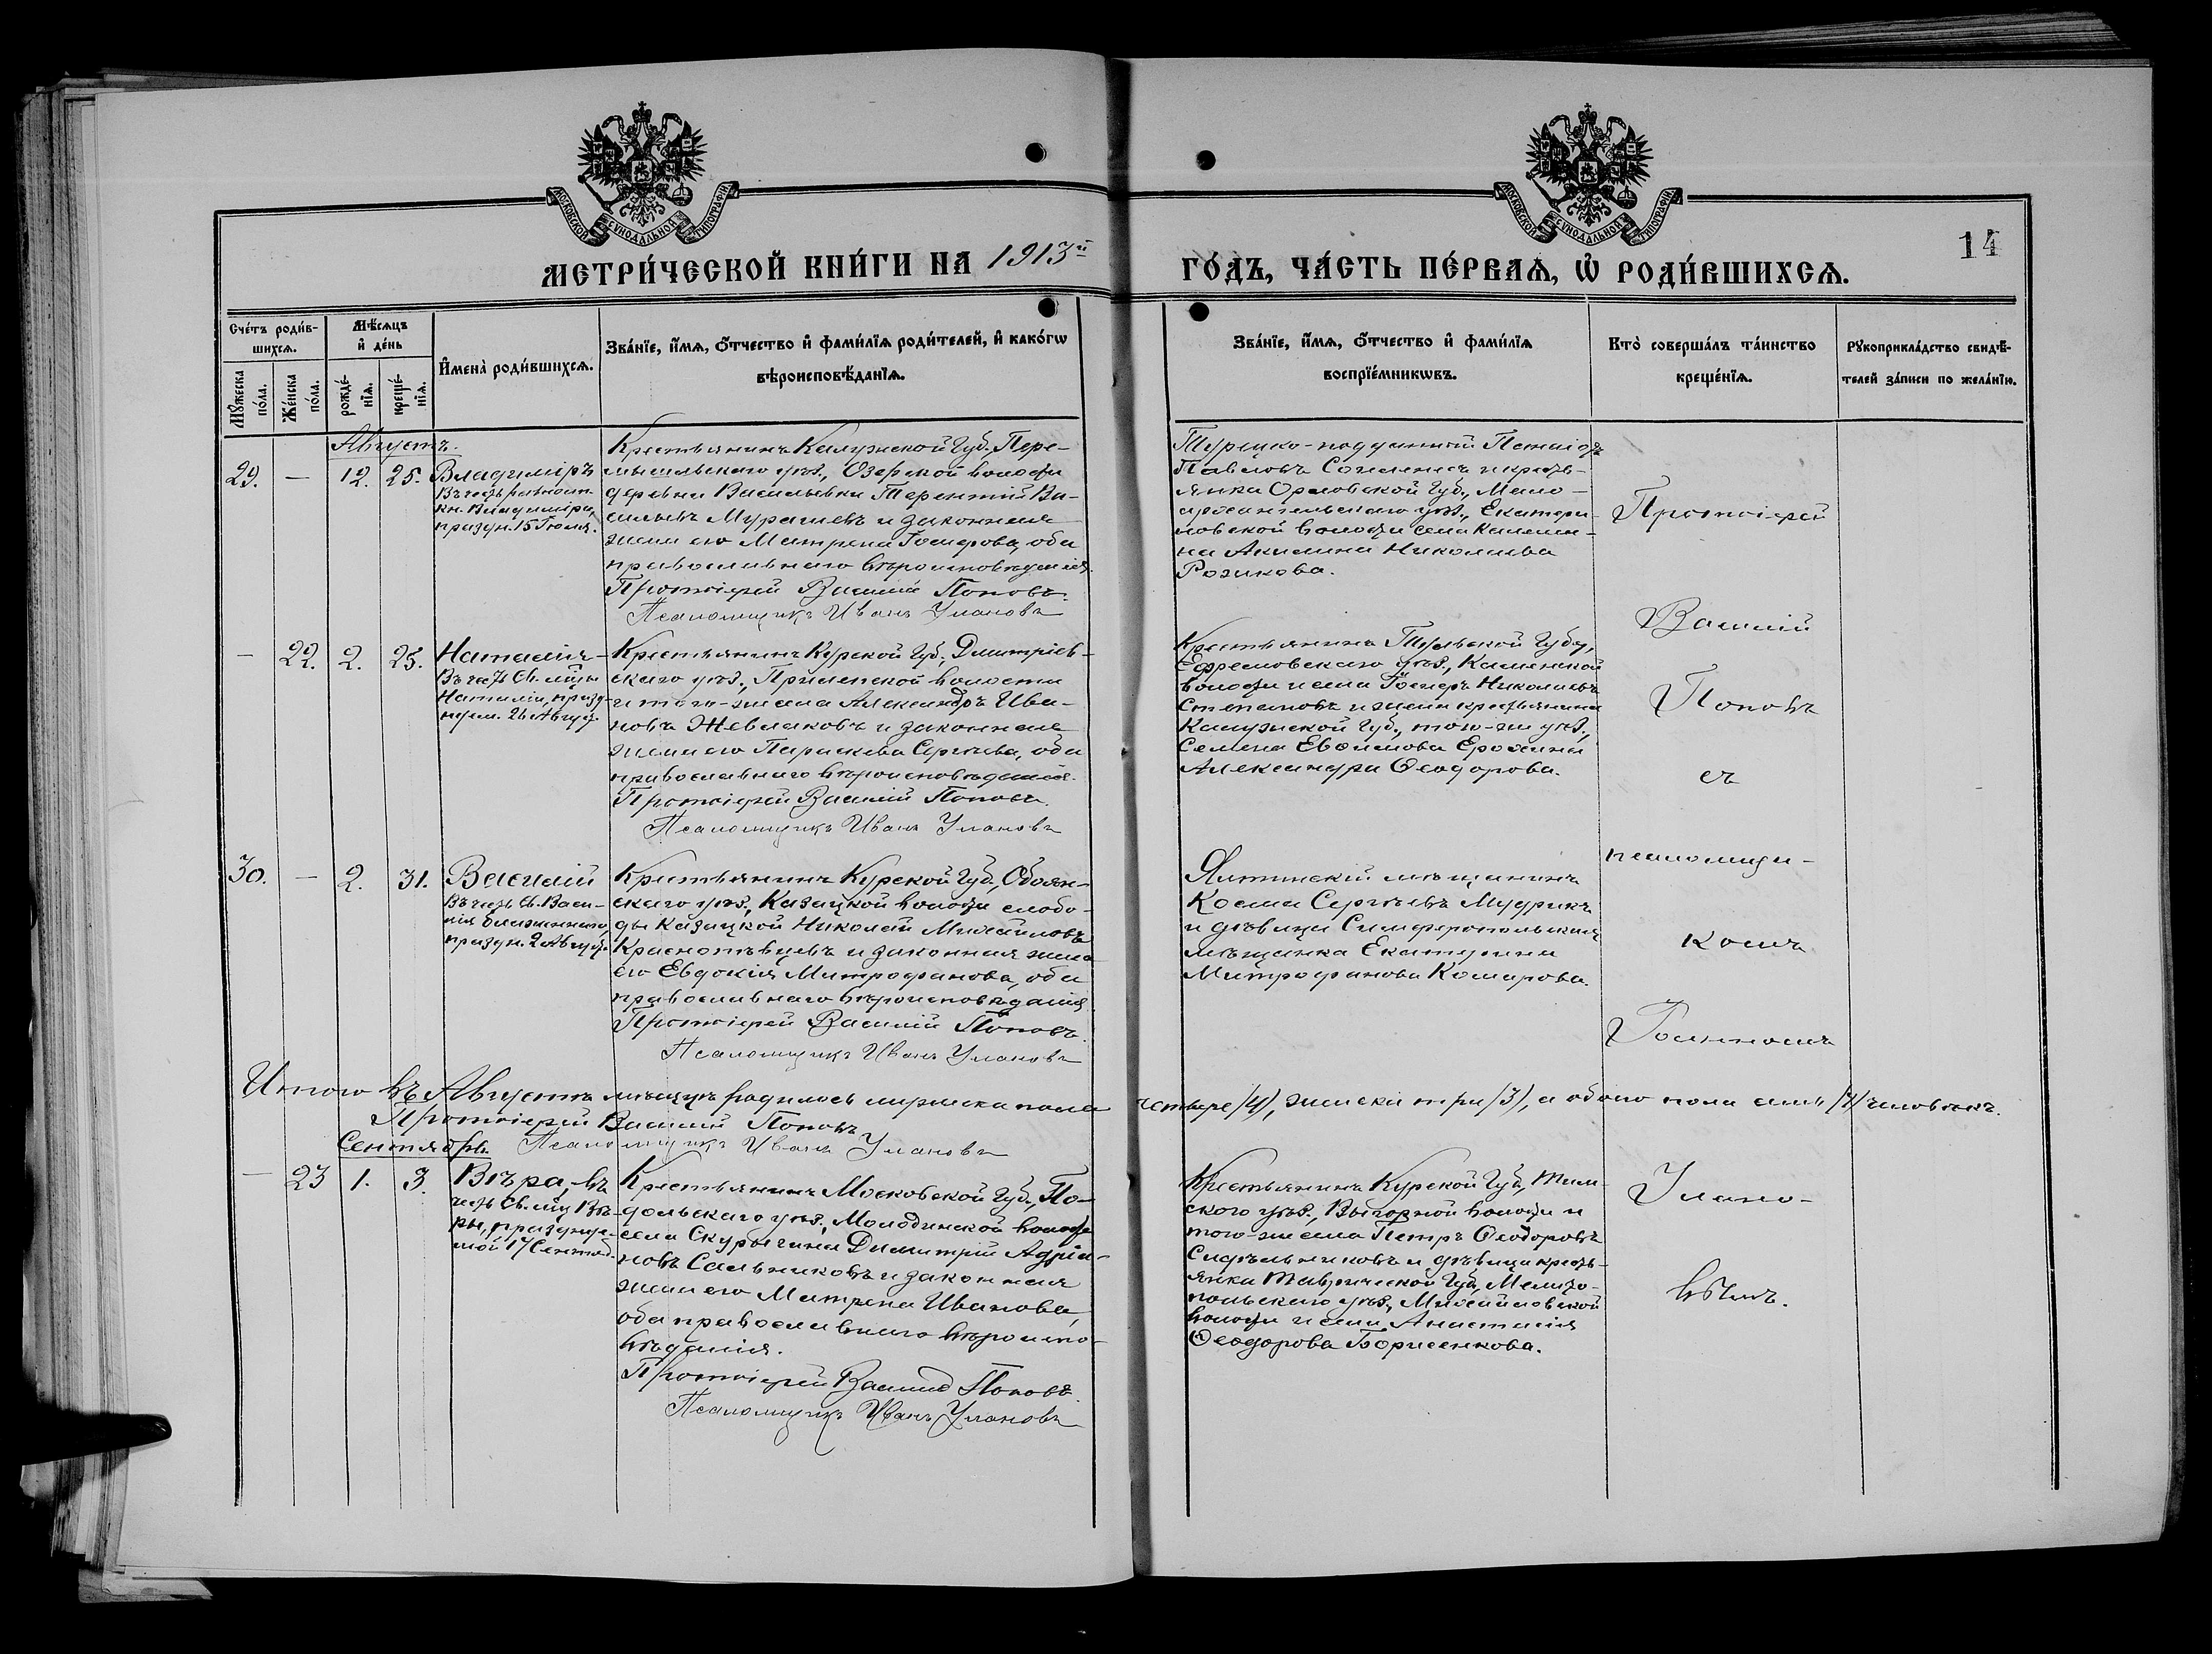 МОСКОВСКОЙ СѴНОДАЛЬНОЙ ТИПОГРАФІИ
МОСКОВСКОЙ СѴНОДАЛЬНОЙ ТИПОГРАФІИ
МЕТРИ́ЧЕСКОЙ КНИ́ГИ НА 1913й ГО́ДЪ, ЧА́СТЬ ПЕ́РВАѦ, Ѡ҆ РОДИ́ВШИХСѦ.
14
Сче́тъ роди́в-
шихсѧ.
Мꙋ́жеска по́ла.
Же́нска по́ла.
Мѣ́сѧцъ
и҆ де́нь
рожде́-
нїѧ.
креще́-
нїѧ.
И҆мена̀ роди́вшихсѧ.
Зва́нїе, и҆́мѧ, ѻ҆́тчество и҆ фами́лїѧ роди́телей, и҆ како́гѡ
вѣроисповѣ́данїѧ.
Зва́нїе, и҆́мѧ, ѻ҆́тчество и҆ фами́лїѧ
воспрїе́мникѡвъ.
Кто̀ соверша́лъ та́инство
креще́нїѧ.
Рꙋкоприкла́дство свидѣ́-
телей за́писи по жела́нїю.
Августъ.
29. — 12. 25.
Владиміръ
Въ честь равноап.
кн. Владиміра,
праздн. 15 Іюля.
Крестьянинъ Калужской Губ., Пере-
мышльскаго уѣз., Озерской волости
деревни Васильевки Терентій Ва-
сильевъ Мурашевъ и законная
жена его Матрена Іосифова, оба
православнаго вѣроисповѣданія.
Протоіерей Василій Поповъ.
Псаломщикъ Иванъ Улановъ
Турецко-подданный
Павловъ и кресть-
янка Орловской Губ., Мало-
архангельскаго уѣз., Екатери-
новской волости села
на Акилина Николаева
Розикова.
— 22. 2. 25.
Наталія —
Въ честь Св. мцы
Наталіи, празд-
нуем. 26 Август.
Крестьянинъ Курской Губ., Дмитріев-
скаго уѣз., Прилепской волости
и того-же села Александръ Ива-
новъ Жевлаковъ и законная
жена его Параскева Сергѣева, оба
православнаго вѣроисповѣданія.
Протоіерей Василій Поповъ.
Псаломщикъ Иванъ Улановъ
Крестьянинъ Тульской Губер.,
Ефремовскаго уѣз., Каменской
волости и села Іосифъ Николаевъ
Степановъ и жена крестьянина
Калужской Губ., того-же уѣз.,
Семена Евфимова Ерохина
Александра Ѳеодорова.
30. — 2. 31.
Василій
Въ честь Св. Васи-
лія блаженнаго,
праздн. 2 Август.
Крестьянинъ Курской Губ., Обоян-
скаго уѣз., Казацкой волости слобо-
ды Казацкой Николай Михайловъ
Краснопѣвцевъ и законная жена
его Евдокія Митрофанова, оба
православнаго вѣроисповѣданія.
Протоіерей Василій Поповъ.
Псаломщикъ Иванъ Улановъ
Ялтинскій мѣщанинъ
Косма Сергѣевъ Мудрикъ
и дѣвица Симферопольская
мѣщанка Екатерина
Митрофанова Комарова.
Итого въ Августѣ мѣсяцѣ родилось мужеска пола четыре /4/, женска три /3/, а обоего пола семь /7/ человѣкъ.
Протоіерей Василій Поповъ
Псаломщикъ Иванъ Улановъ
Сентябрь.
— 23 1. 3.
Вѣра, въ
честь Св. мцы Вѣ-
ры, празднуе-
мой 17 Сентяб.
Крестьянинъ Московской Губ., По-
дольскаго уѣз., Молодинской волости
села Скурыгина Димитрій Адріа-
новъ Сальниковъ и законная
жена его Матрена Иванова,
оба православнаго вѣроиспо-
вѣданія.
Протоіерей Василій Поповъ.
Псаломщикъ Иванъ Улановъ
Крестьянинъ Курской Губ., Тим-
ского уѣз., Выгорной волости и
того-же села Петръ Ѳеодоровъ
Сидѣльниковъ и дѣвица кресть-
янка Таврической Губ., Мелито-
польскаго уѣз., Михайловской
волости и села Анастасія
Ѳеодорова Борисенкова.
Протоіерей
Василій
Поповъ
съ
псаломщи-
комъ
Іоанномъ
Улано-
вымъ.